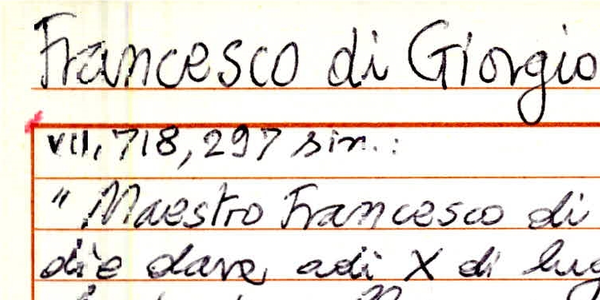 Francesco di Giorgio
VII, 718, 297 sin.:
" Maestro Francesco di
die dare adi X di lug